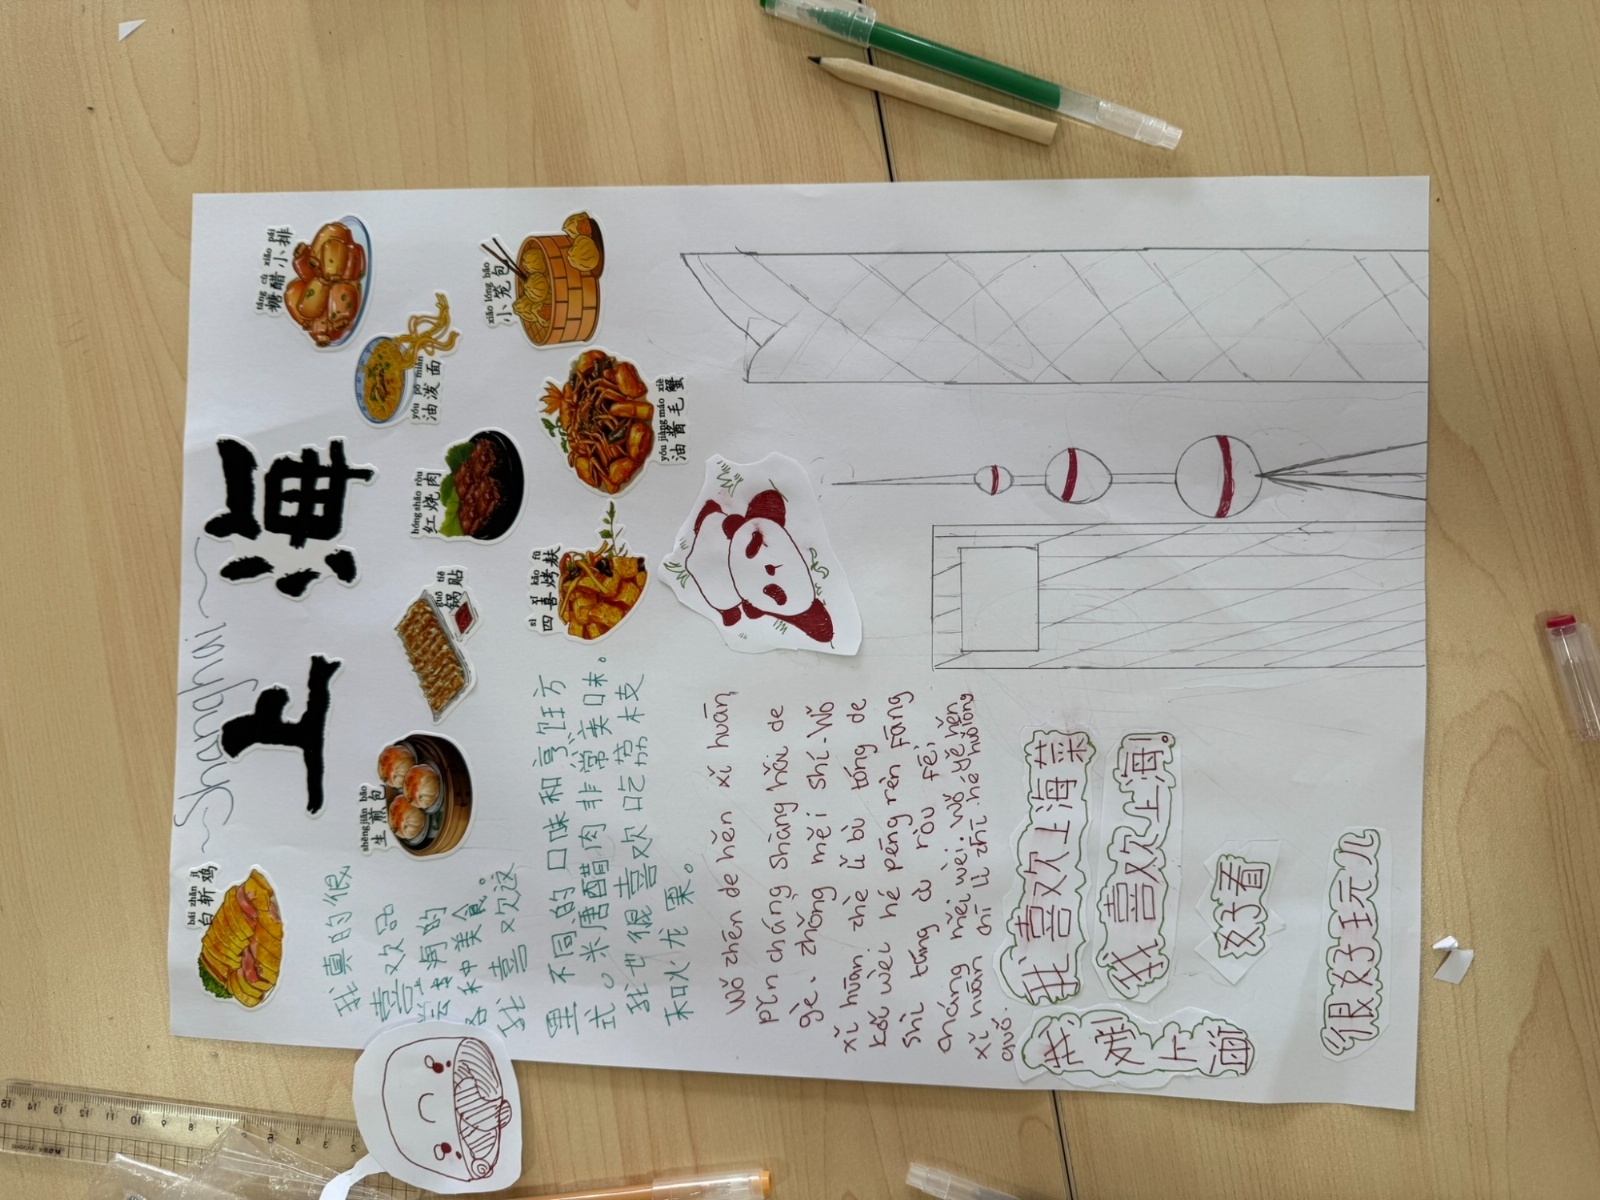 ~Shanghai~
上海
bái zhǎn jī
白斩鸡
shēng jiān bāo
生煎包
guō tiē
锅贴
hóng shāo ròu
红烧肉
yóu pō miàn
油泼面
táng cù xiǎo pái
糖醋小排
xiǎo lóng bāo
小笼包
yóu jiàng máo xiè
油酱毛蟹
sì xǐ kǎo fū
四喜烤麸
我真的很
喜欢品
尝上海的
各种美食。
我喜欢这
里不同的口味和烹饪方
式。米唐醋肉非常美味。
我也很喜欢吃荔枝
和火龙果。
Wǒ zhēn de hěn xǐ huān
pǐn cháng Shàng hǎi de
gè. zhǒng měi shí. Wǒ
xǐ huān zhè lǐ bù tóng de
kǒu wèi hé pēng rèn fāng
shì táng cù ròu fēi
cháng měi wèi. Wǒ yě hěn
xǐ huān chī lì zhī hé huǒ lóng
guǒ.
我喜欢上海菜
我喜欢上海。
我到上海
好看
很好玩儿